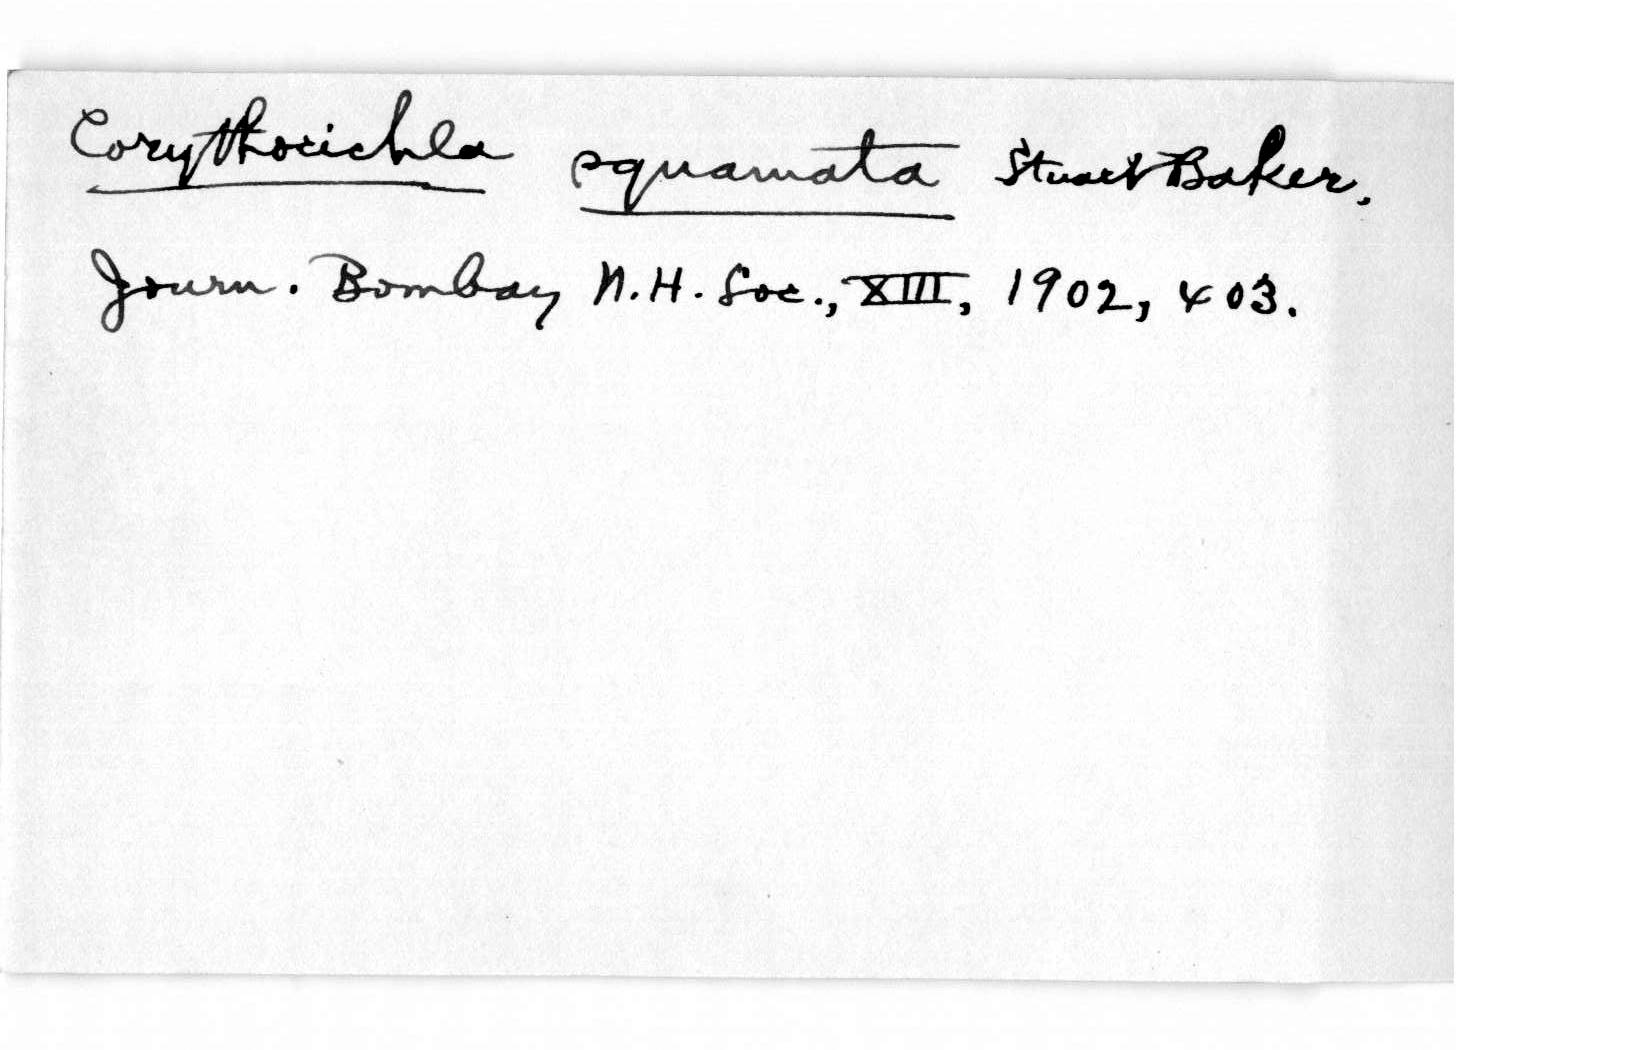 Corythocichla squamata Stuart Baker,
Journ. Bombay N.H. Soc., XIII, 1902, 403.